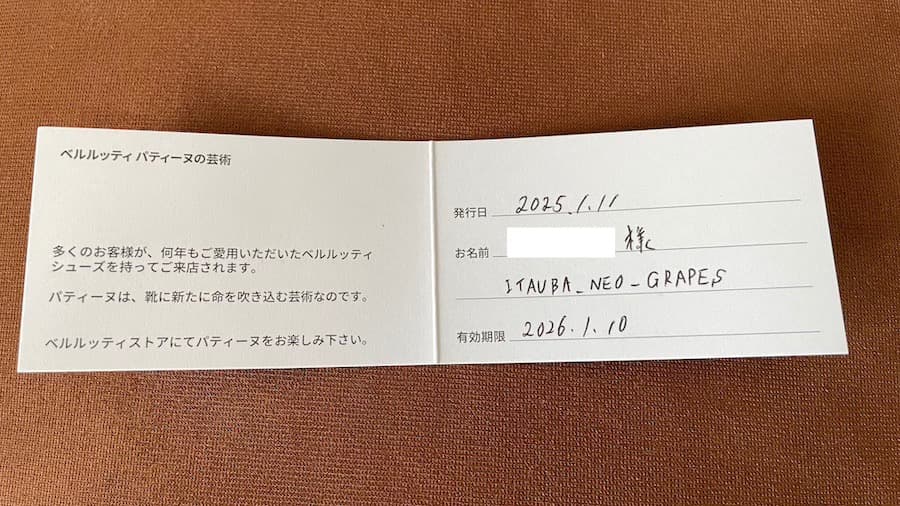 ベルルッティ パティーヌの芸術
多くのお客様が、何年もご愛用いただいたベルルッティ
シューズを持ってご来店されます。
パティーヌは、靴に新たに命を吹き込む芸術なのです。
ベルルッティストアにてパティーヌをお楽しみ下さい。
発行日 2025.1.11
お名前 様
ITAUBA_NEO_GRAPES
有効期限 2026.1.10